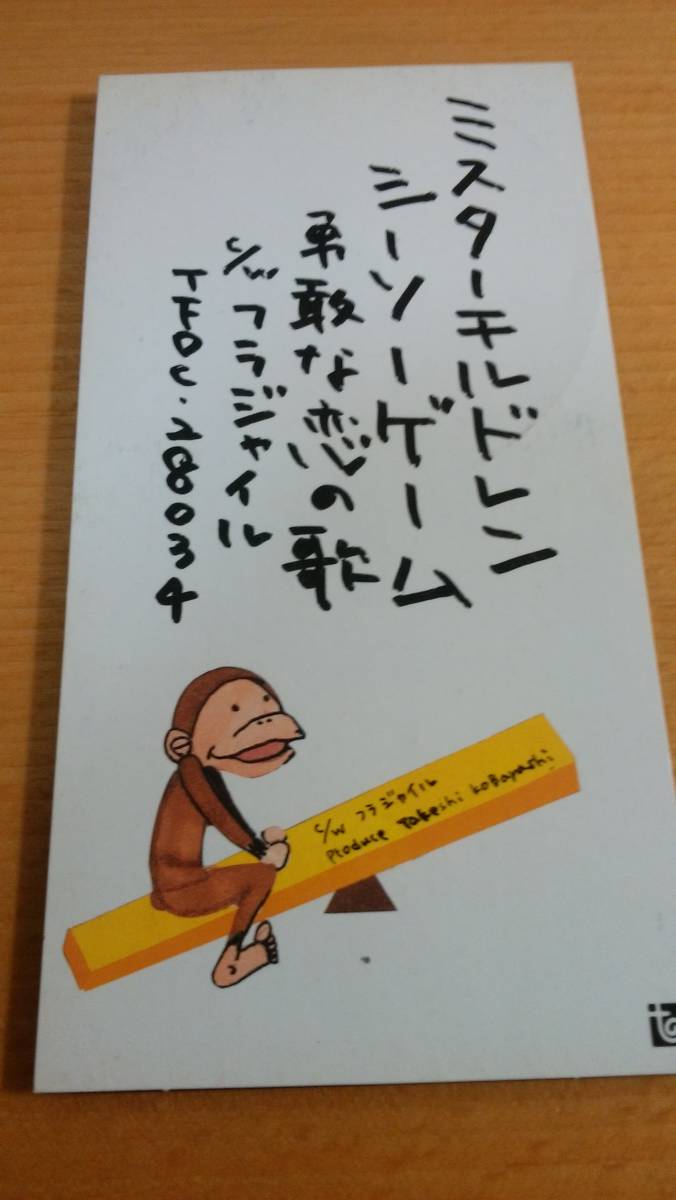 ミスターチルドレン
シーソーゲーム
勇敢な恋の歌
c/w フラジャイル
TFDC・18034
c/w フラジャイル
Produce Takeshi Kobayashi